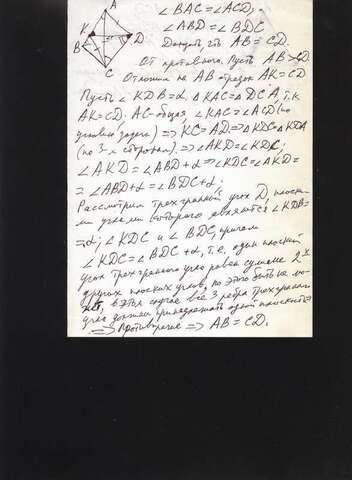 A
K
B
D
C
∠BAC = ∠ACD,
∠ABD = ∠BDC
Доказать, что AB = CD.
От противного. Пусть AB > CD.
Отложим на AB отрезок AK = CD
Пусть ∠KDB = α. ΔKAC = ΔDCA, т.к.
AK = CD. AC - общая ∠KAC = ∠ACD (по
условию задачи) ⇒ KC = AD ⇒ ΔKDC = ΔKDA
(по 3-м сторонам). ⇒ ∠AKD = ∠KDC;
∠AKD = ∠ABD + α ⇒ ∠KDC = ∠AKD =
= ∠ABD + α = ∠BDC + α.
Рассмотрим трехгранный угол D, плоски-
ми углами которого являются ∠KDB =
= α; ∠KDC и ∠BDC, причем
∠KDC = ∠BDC + α, т.е. один плоский
угол трехгранного угла равен сумме 2-х
других плоских углов, но этого быть не мо-
жет, в этом случае все 3 ребра трехгранного
угла должны принадлежать одной плоскости
⇒ Противоречие ⇒ AB = CD.